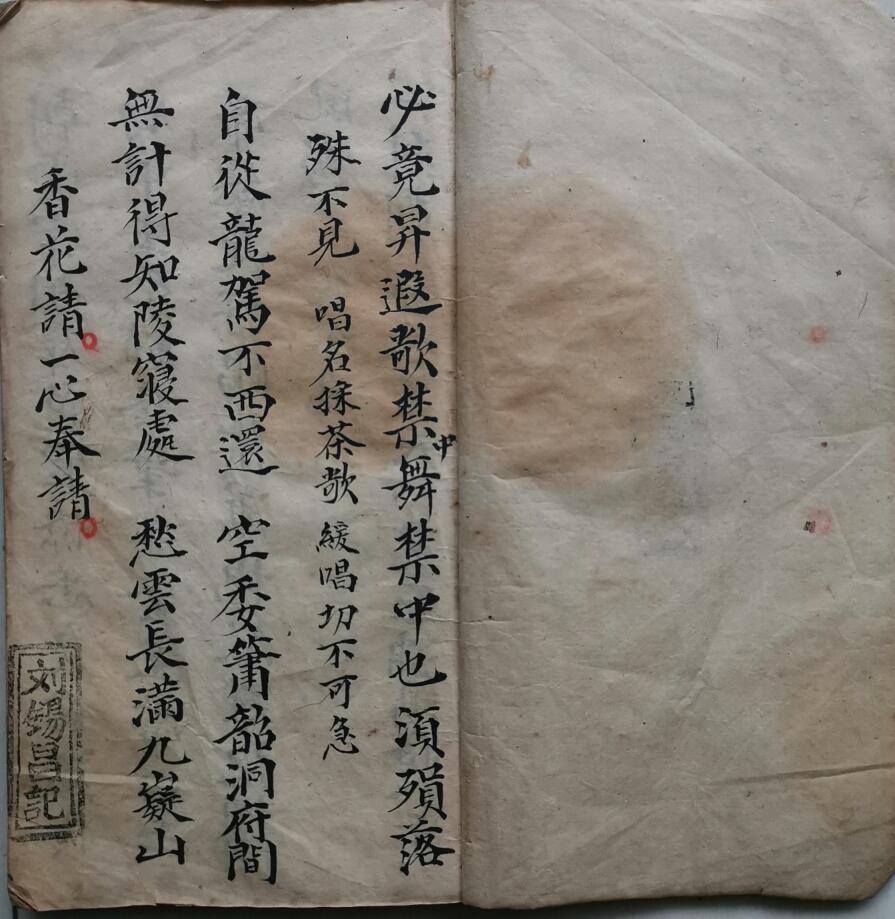 必竟昇遐歌禁中舞禁中也須殞落
殊不見 唱名採茶歌緩唱切不可急
自從龍駕不西還 空委簫韶洞府間
無計得知陵寢處 愁雲長滿九嶷山
香花請一心奉請
刘錫昌記